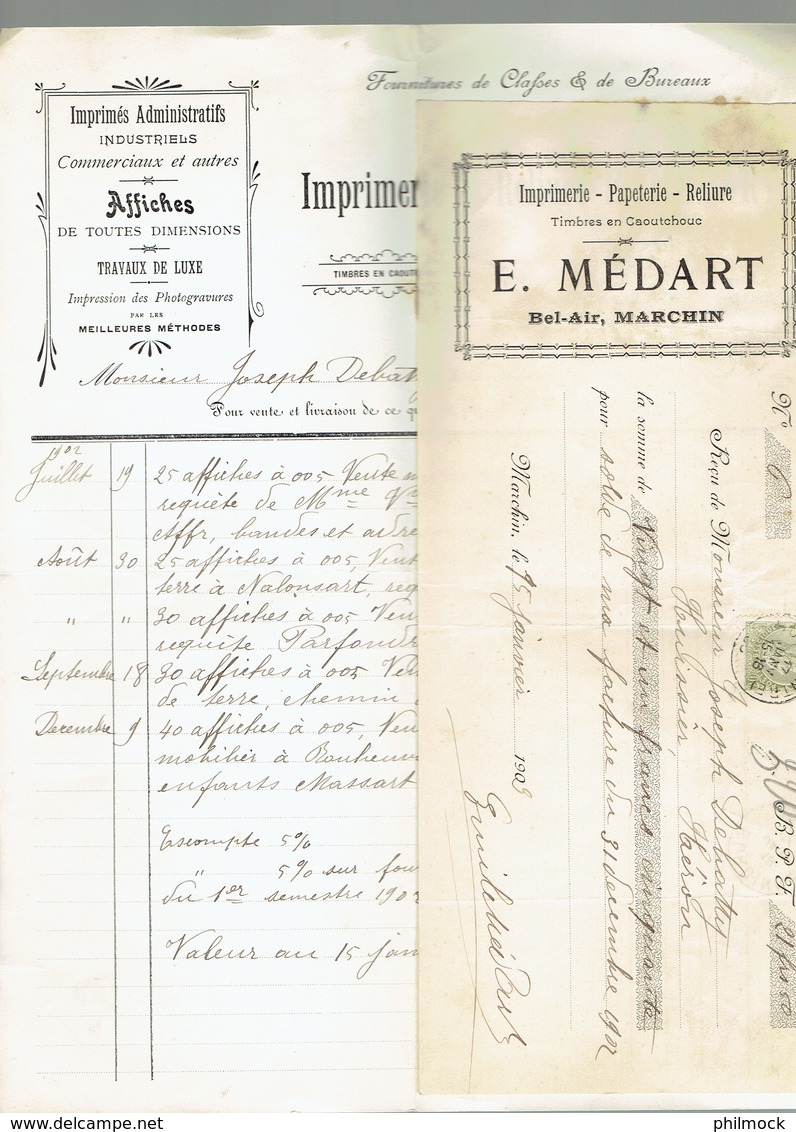 Fournitures de Classes & de Bureaux
Imprimés Administratifs
INDUSTRIELS
Commerciaux et autres
Affiches
DE TOUTES DIMENSIONS
TRAVAUX DE LUXE
Impression des Photogravures
PAR LES
MEILLEURES MÉTHODES
Imprimer
TIMBRES EN CAOUT
Monsieur Joseph Debat
Pour vente et livraison de ce q
1902
Juillet 19 25 affiches à 005 Vente
requête de Mme
Affr, bandes et adre
Août 30 25 affiches à 005, Vent
terre à Nalonsart, req
" " 30 affiches à 005 Ven
requête Parfondr
Septembre 18 30 affiches à 005 Ven
de terre, chemin
Decembre 9 40 affiches à 005, Ven
mobilier à
enfants Massart
Escompte 5%
" 5% sur four
du 1er semestre 1902
Valeur au 15 jan
Imprimerie - Papeterie - Reliure
Timbres en Caoutchouc
E. MÉDART
Bel-Air, MARCHIN
No 6
B. P. F. 21 frs 50
Reçu de Monsieur Joseph Debatty
Huissier Héron
la somme de Vingt et un francs cinquante
pour solde de ma facture du 31 decembre 1902
Marchin, le 15 janvier 1903
philmock